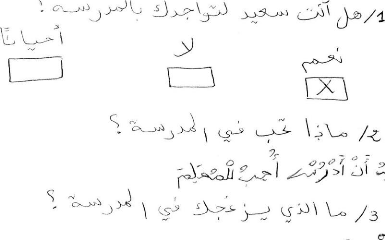 1/ هل أنت سعيد لتواجدك بالمدرسة؟
نعم لا أحيانا
X
2/ ماذا تحب في المدرسة؟
أن أدرس أحب المعلمة
3/ ما الذي يزعجك في المدرسة؟